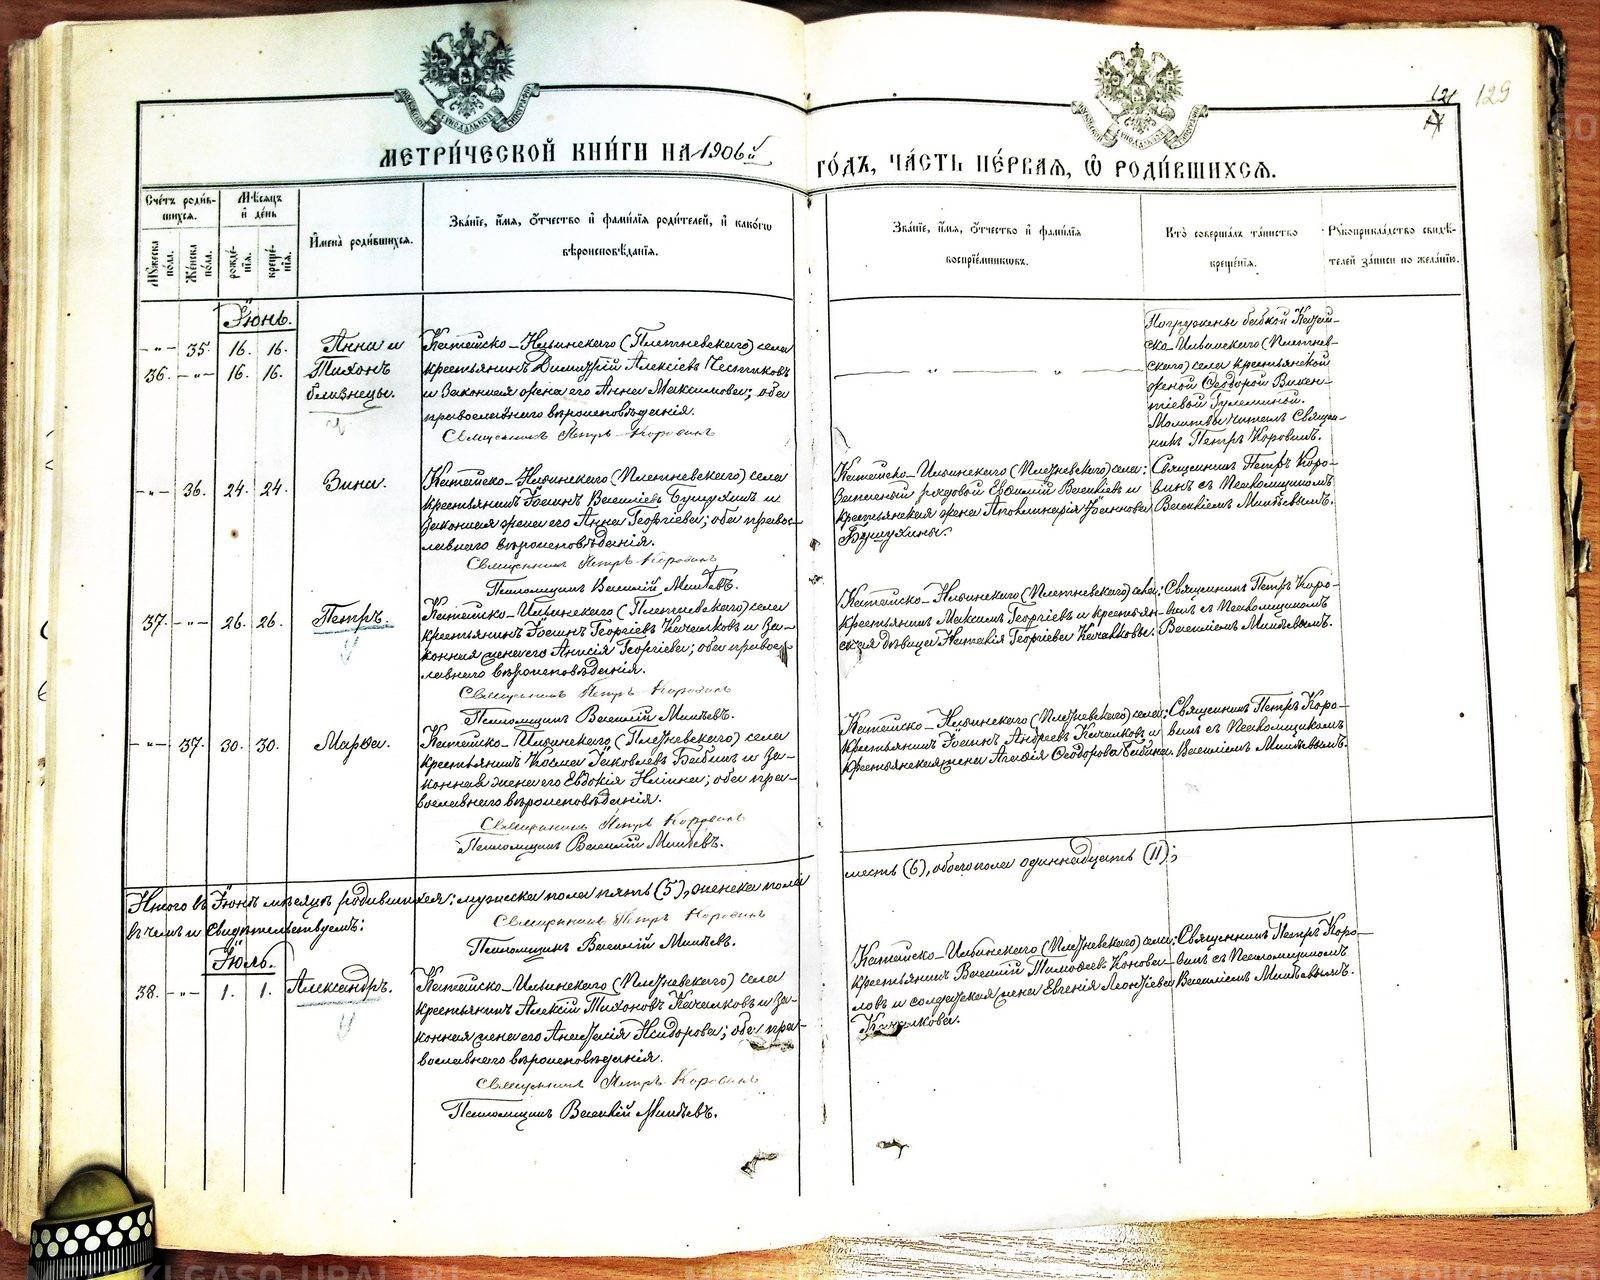 121 129
МЕТРИ́ЧЕСКОЙ КНИ́ГИ НА 1906й ГО́ДЪ, ЧА́СТЬ ПЕ́РВАЯ, Ѽ РОДИ́ВШИХСЯ.
Сче́тъ роди́вшихся.
Мѣ́сяцъ и҆ де́нь
И҆мена̀ роди́вшихся.
Зва́нїе, и҆́мя, ѻ҆́тчество и҆ фами́лїя роди́телей, и҆ како́гѡ
вѣроисповѣ́данїя.
Зва́нїе, и҆́мя, ѻ҆́тчество и҆ фами́лїя
воспрїе́мникѡвъ.
Кто̀ соверша́лъ та́инство
креще́нїя.
Рꙋкоприкла́дство свидѣ́-
телей за́писи по жела́нїю.
Мꙋ́жеска по́ла.
Же́нска по́ла.
рожде́-нїя.
креще́-нїя.
Іюнь.
-"- 35. 16. 16. Анна и
36. -"- 16. 16. Тихонъ
близнецы.
Катайско-Ильинскаго (Плетневскаго) села
крестьянинъ Димитрій Алексіевъ
и законная жена его Анна Максимова; оба
православнаго вѣроисповѣданія.
Священникъ Петръ Коровинъ
Погружены бабкой Катай-
ско-Ильинскаго (Плетнев-
скаго) села крестьянской
женой Ѳеодорой Викен-
тіевой
Молитвы читалъ Священ-
никъ Петръ Коровинъ.
-"- 36. 24. 24. Зина.
Катайско-Ильинскаго (Плетневскаго) села
крестьянинъ Іоаннъ Василіевъ и
законная жена его Анна Георгіева; оба право-
славнаго вѣроисповѣданія.
Священникъ Петръ Коровинъ
Псаломщикъ Василій Минѣевъ.
Катайско-Ильинскаго (Плетневскаго) села:
запасный рядовой Евѳимій Василіевъ и
крестьянская жена Аполлинарія Іоаннова
Священникъ Петръ Коро-
винъ съ Псаломщикомъ
Василіемъ Минѣевымъ.
37. -"- 26. 26. Петръ.
Катайско-Ильинскаго (Плетневскаго) села
крестьянинъ Іоаннъ Георгіевъ Качалковъ и за-
конная жена его Анисія Георгіева; оба право-
славнаго вѣроисповѣданія.
Священникъ Петръ Коровинъ
Псаломщикъ Василій Минѣевъ.
Катайско-Ильинскаго (Плетневскаго) села:
крестьянинъ Максимъ Георгіевъ и крестьян-
ская дѣвица Наталія Георгіева Качалковы.
Священникъ Петръ Коро-
винъ съ Псаломщикомъ
Василіемъ Минѣевымъ.
-"- 37. 30. 30. Марѳа.
Катайско-Ильинскаго (Плетневскаго) села
крестьянинъ Косма Іаковлевъ Бабинъ и за-
конная жена его Евдокія Иліина; оба пра-
вославнаго вѣроисповѣданія.
Священникъ Петръ Коровинъ
Псаломщикъ Василій Минѣевъ.
Катайско-Ильинскаго (Плетневскаго) села:
крестьянинъ Іоаннъ Андреевъ Качалковъ и
крестьянская жена Агаѳія Ѳеодорова Бабина.
Священникъ Петръ Коро-
винъ съ Псаломщикомъ
Василіемъ Минѣевымъ.
Итого въ Іюнѣ мѣсяцѣ родившихся: мужска пола пять (5), женска пола шесть (6), обоего пола одиннадцать (11);
въ чемъ и свидѣтельствуемъ:
Священникъ Петръ Коровинъ
Псаломщикъ Василій Минѣевъ.
Іюль.
38. -"- 1. 1. Александръ.
Катайско-Ильинскаго (Плетневскаго) села
крестьянинъ Алексій Тихоновъ Качалковъ и за-
конная жена его Анастасія Исидорова; оба пра-
вославнаго вѣроисповѣданія.
Священникъ Петръ Коровинъ
Псаломщикъ Василій Минѣевъ.
Катайско-Ильинскаго (Плетневскаго) села:
крестьянинъ Василій Тимоѳеевъ Конова-
ловъ и солдатская жена Евгенія Леонтіева
Качалкова.
Священникъ Петръ Коро-
винъ съ Псаломщикомъ
Василіемъ Минѣевымъ.